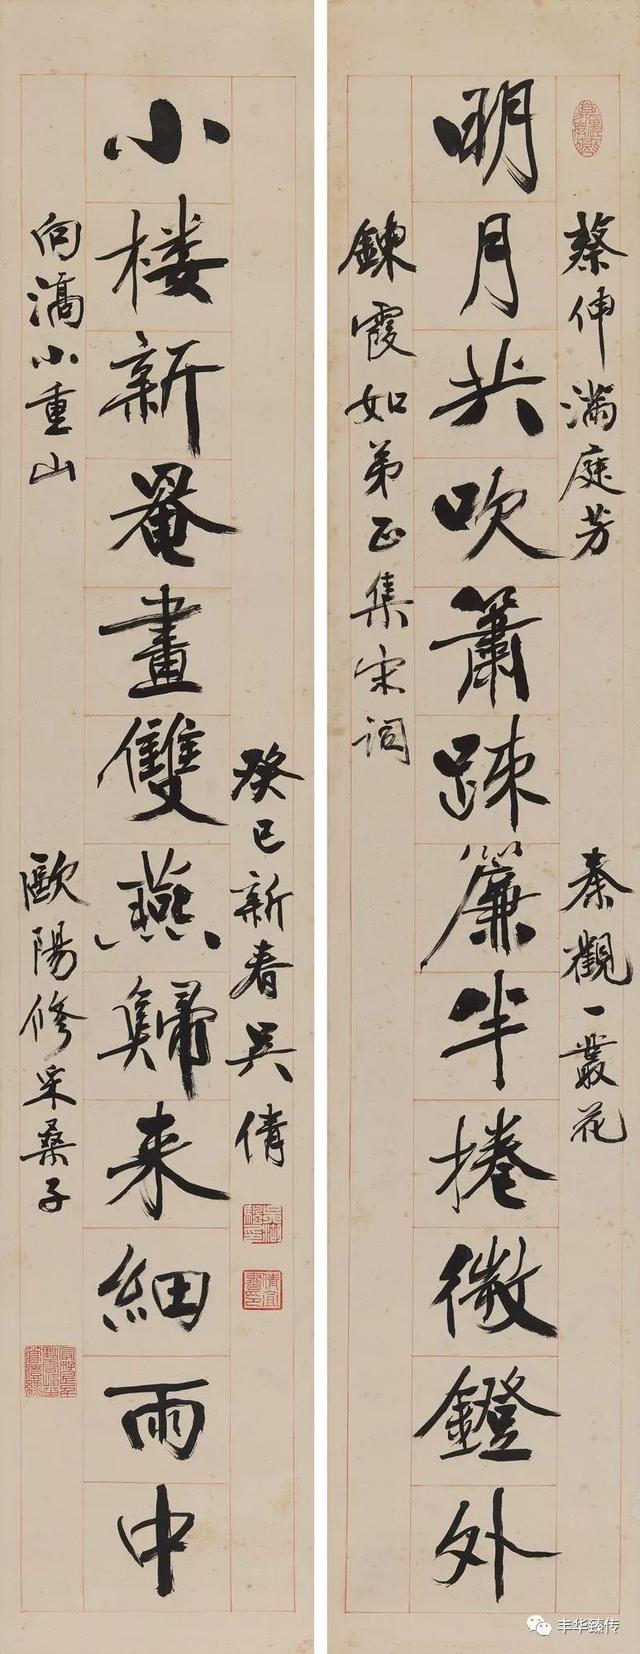 蔡伸滿庭芳
秦觀一叢花
明月共吹簫疎簾半捲微鐙外
鍊霞如弟正集宋詞
癸巳新春吳倩
小楼新罨畫雙燕歸来細雨中
向滈小重山
歐陽修采桑子
丰华臻传